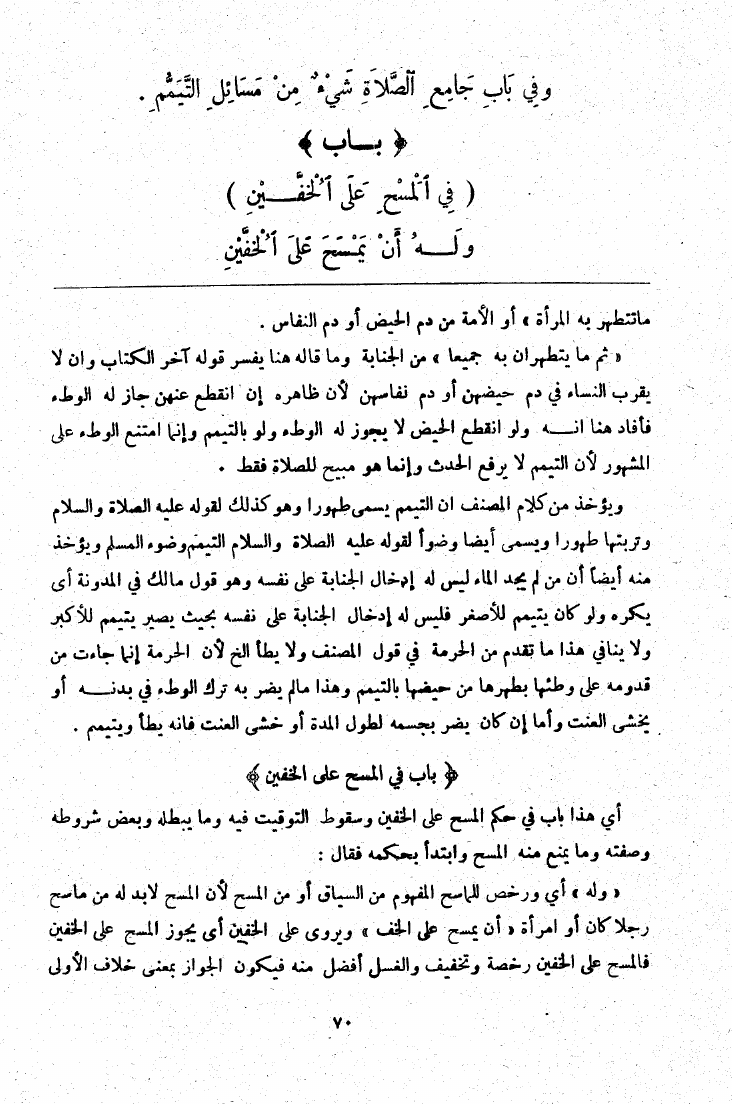 وفِي بَابِ جَامِعِ ٱلصَّلَاةِ شَيْءٌ مِنْ مَسَائِلِ التَّيَمُّمِ .
﴿ بــاب ﴾
( فِي ٱلْمَسْحِ عَلَى ٱلْخُفَّــيْنِ )
ولَــهُ أَنْ يَمْسَحَ عَلَى ٱلْخُفَّيْنِ
ماتتطهر به المرأة » أو الأمة من دم الحيض أو دم النفاس .
« ثم ما يتطهران به جميعا » من الجنابة وما قاله هنا يفسر قوله آخر الكتاب وان لا
يقرب النساء في دم حيضهن أو دم نفاسهن لأن ظاهره إن انقطع عنهن جاز له الوطء
فأفاد هنا انــه ولو انقطع الحيض لا يجوز له الوطء ولو بالتيمم وإنما امتنع الوطء على
المشهور لأن التيمم لا يرفع الحدث وإنما هو مبيح للصلاة فقط .
ويؤخذ من كلام المصنف ان التيمم يسمى طهورا وهو كذلك لقوله عليه الصلاة والسلام
وتربتها طهورا ويسمى أيضا وضوأ لقوله عليه الصلاة والسلام التيمم وضوء المسلم ويؤخذ
منه أيضاً أن من لم يجد الماء ليس له إدخال الجنابة على نفسه وهو قول مالك في المدونة أى
يكره ولو كان يتيمم للأصغر فليس له إدخال الجنابة على نفسه بحيث يصير يتيمم للأكبر
ولا ينافي هذا ما تقدم من الحرمة في قول المصنف ولا يطأ الخ لأن الحرمة إنما جاءت من
قدومه على وطئها بطهرها من حيضها بالتيمم وهذا مالم يضر به ترك الوطء في بدنــه أو
يخشى العنت وأما إن كان يضر بجسمه لطول المدة أو خشى العنت فانه يطأ ويتيمم .
﴿ باب في المسح على الخفين ﴾
أي هذا باب في حكم المسح على الخفين وسقوط التوقيت فيه وما يبطله وبعض شروطه
وصفته وما يمنع منه المسح وابتدأ بحكمه فقال :
« وله » أي ورخص للماسح المفهوم من السياق أو من المسح لأن المسح لابد له من ماسح
رجلا كان أو امرأة « أن يمسح على الخف » ويروى على الخفين أى يجوز المسح على الخفين
فالمسح على الخفين رخصة وتخفيف والغسل أفضل منه فيكون الجواز بمعنى خلاف الأولى
٧٠